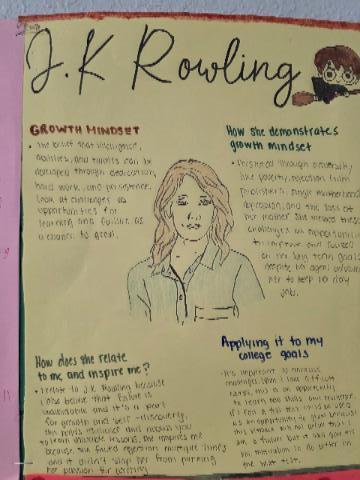 J.K Rowling
GROWTH MINDSET
• The belief that intelligence,
abilities, and talents can be
developed through dedication,
hard work, and persistence.
Look at challenges as
opportunities for
learning and failure as
a chance to grow.
How she demonstrates
growth mindset
• Persisted through adversity
like poverty, rejection from
publishers, single motherhood,
depression, and the loss of
her mother. She viewed these
challenges as opportunities
to improve and focused
on her long term goals
despite
her to keep
job.
How does she relate
to me and inspire me?
• I relate to J.K Rowling because
I also believe that failure is
and it's a part
for growth and self-discovery.
this helps
to learn valuable lessons. She inspires me
because she faced rejection multiple times
and it didn't stop her from pursuing
her passion for writing
Applying it to my
college goals
• It's important to
when I took difficult
to learn new skills and
if I get a bad test score
as an opportunity to grow because
this
am a failure but it will give me
motivation to do better on
the next test.